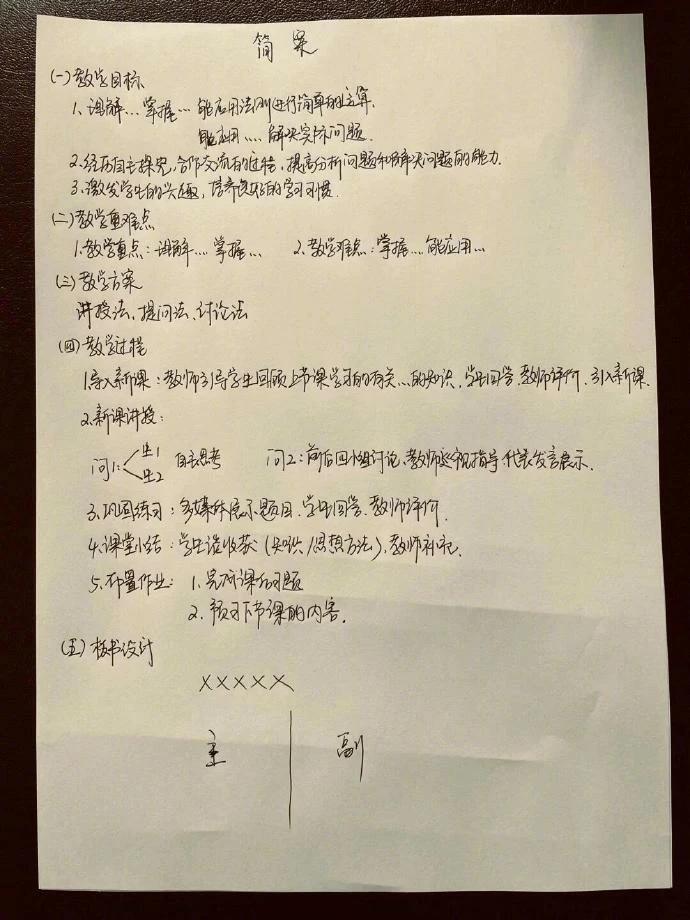 简案
(一)教学目标
1、理解…掌握…能应用法则进行简单的运算.
能应用….解决实际问题.
2.经历自主探究,合作交流的过程,提高分析问题和解决问题的能力.
3.激发学生的兴趣,培养良好的学习习惯.
(二)教学重难点
1.教学重点:理解….掌握… 2.教学难点:掌握….能应用…
(三)教学方案
讲授法、提问法、讨论法
(四)教学过程
1.导入新课:教师引导学生回顾上节课学习的有关…的知识,学生回答.教师评价.引入新课.
2.新课讲授:
问1: 生1 生2 自主思考 问2:前后四人小组讨论,教师巡视指导.代表发言展示.
3.巩固练习:多媒体展示题目.学生回答.教师评价.
4.课堂小结:学生谈收获(知识/思想方法),教师补充.
5.布置作业: 1.完成课后习题
2.预习下节课的内容.
(五)板书设计
XXXXX
主 副